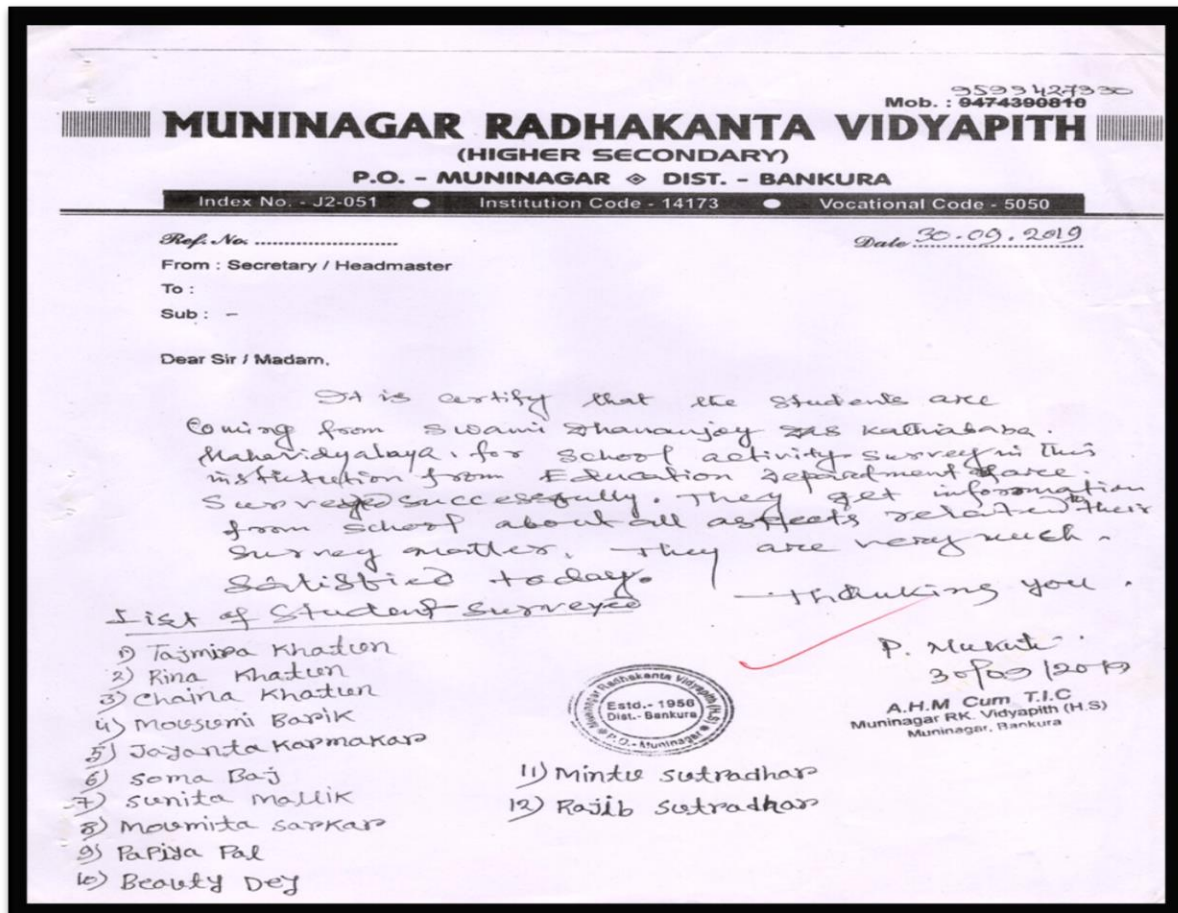 9593427330
Mob. : 9474390810
MUNINAGAR RADHAKANTA VIDYAPITH
(HIGHER SECONDARY)
P.O. - MUNINAGAR ◈ DIST. - BANKURA
Index No. - J2-051 ● Institution Code - 14173 ● Vocational Code - 5050
Ref. No. ........................... Date 30.09.2019
From : Secretary / Headmaster
To :
Sub : -
Dear Sir / Madam,
It is certify that the students are
Coming from Swami Dhananjoy Das Kathiababa
Mahavidyalaya. for School activity survey in this
institution from Education Department
survey successfully. They get information
from School about all aspects related their
survey matter. They are very much
satisfied today.
Thanking you.
List of Student Surveyee
1) Tajmira Khatun
2) Rina Khatun
3) Chaina Khatun
4) Mousumi Barik
5) Jayanta Karmakar
6) Soma Baj
7) Sunita Mallik
8) Moumita Sarkar
9) Papiya Pal
10) Beauty Dey
11) Mintu Sutradhar
12) Rajib Sutradhar
Muninagar Radhakanta Vidyapith (H.S)
Estd.- 1956
Dist.- Bankura
P.O.- Muninagar
P.
30/09/2019
A.H.M Cum T.I.C
Muninagar RK. Vidyapith (H.S)
Muninagar, Bankura